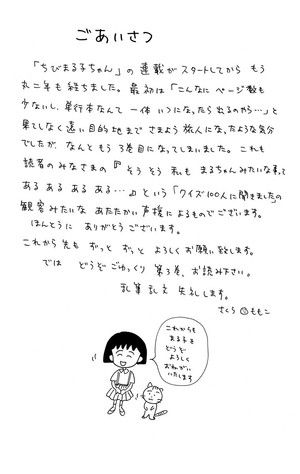 ごあいさつ
「ちびまる子ちゃん」の連載がスタートしてから もう
丸二年も経ちました。最初は「こんなに ページ数も
少ないし、単行本なんて 一体 いつになったら出るのやら…」と
果てしなく遠い目的地まで さまよう旅人になったような気分
でしたが、なんと もう3巻目になってしまいました。これも
読者のみなさまの『そうそう 私も まるちゃんみたいな事って
ある ある ある ある…♪』という「クイズ100人に聞きました」の
観客みたいな あたたかい声援によるものでございます。
ほんとうに ありがとうございます。
これから先も ずっと ずっと よろしくお願い致します。
では どうぞごゆっくり 第3巻、お読み下さい。
乱筆乱文 失礼します。
さくらももこ
これからも
まる子を
どうぞ
よろしく
おねがい
いたします